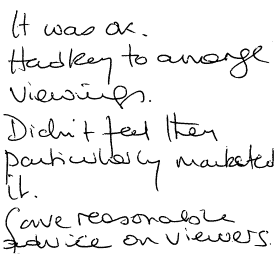 It was ok.
Had key to arrange
viewings.
Didn't feel they
particularly marketed
it.
Gave reasonable
advice on viewers.